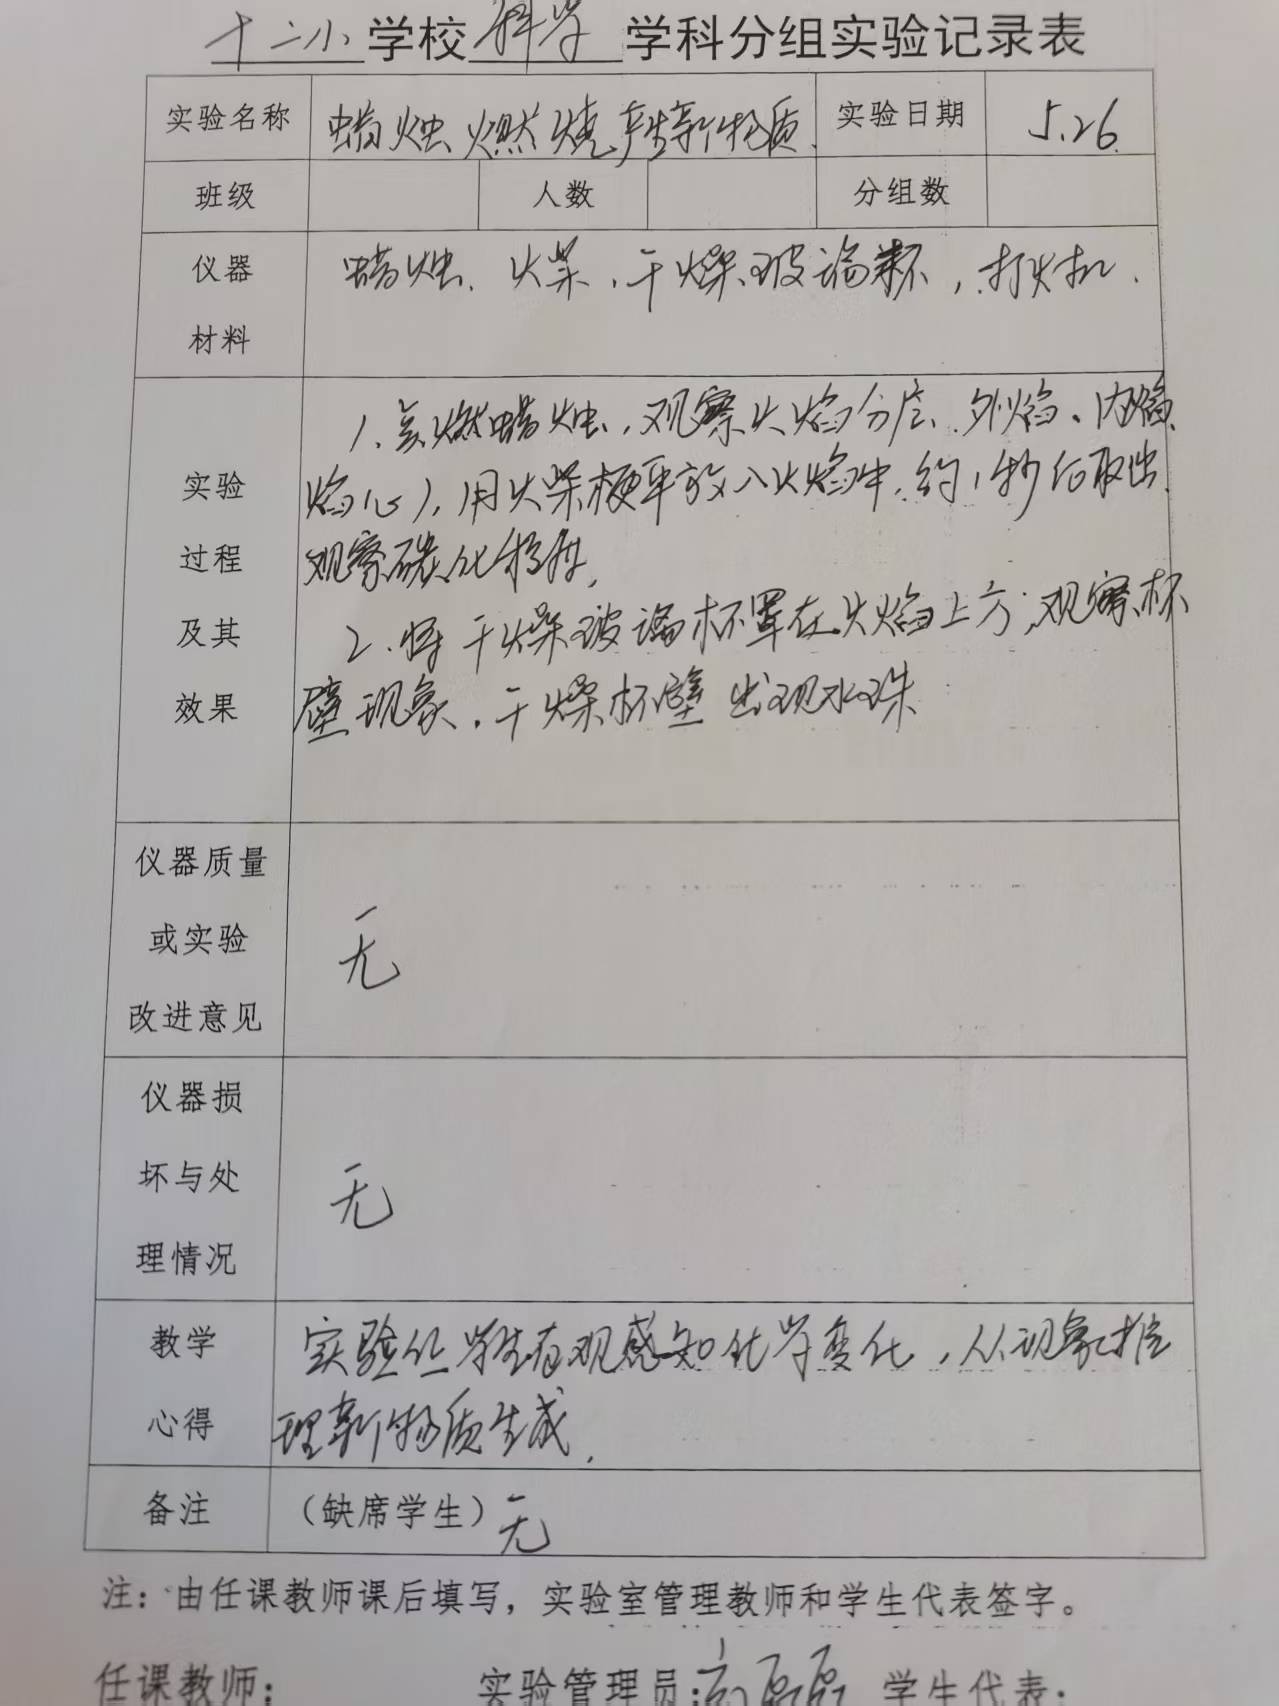 十二小学校科学学科分组实验记录表
实验名称 蜡烛燃烧产生新物质. 实验日期 5.26.
班级 人数 分组数
仪器 材料 蜡烛、火柴、干燥玻璃杯，打火机.
实验 过程 及其 效果
1、点燃蜡烛，观察火焰分层、外焰、内焰、
焰心），用火柴梗平放入火焰中，约1秒后取出.
观察碳化程度，
2、将干燥玻璃杯罩在火焰上方，观察杯
壁现象，干燥杯壁出现水珠
仪器质量
或实验 无
改进意见
仪器损
坏与处 无
理情况
教学 实验让学生直观感知化学变化，从现象推
心得 理新物质生成.
备注 （缺席学生）无
注：由任课教师课后填写，实验室管理教师和学生代表签字。
任课教师： 实验管理员：高磊磊 学生代表：